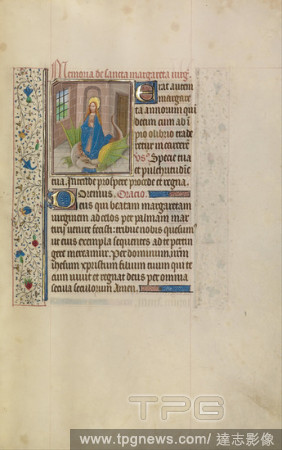 Memoria de sancta margareta virg̃
Erat autem
margare
ta annorum qui
decim cum ab i
pio olibrio trade
retur in carcerem
vs̃ Specie tua
et pulchritudie
tua Intende prospere procede et regna.
Oremus. Oracio.
Deus qui beatam margaretam
virginem ad celos per palmam mar
tirij venire fecisti: tribue nobis quesum⁹
eius exempla sequentes ad te pertin
gere mereamur. Per dominum nr̃m
ihesum xpristum filium tuum qui te
cum vivit et regnat deus per omnia
secula seculorum Amen.
TPG
www.tpgnews.com/達志影像